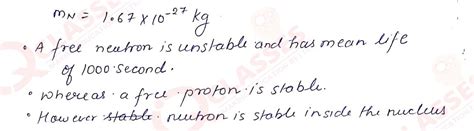 mN = 1.67 x 10-27 kg
• A free neutron is unstable and has mean life
of 1000 second.
• whereas a free proton is stable.
• However stable neutron is stable inside the nucleus